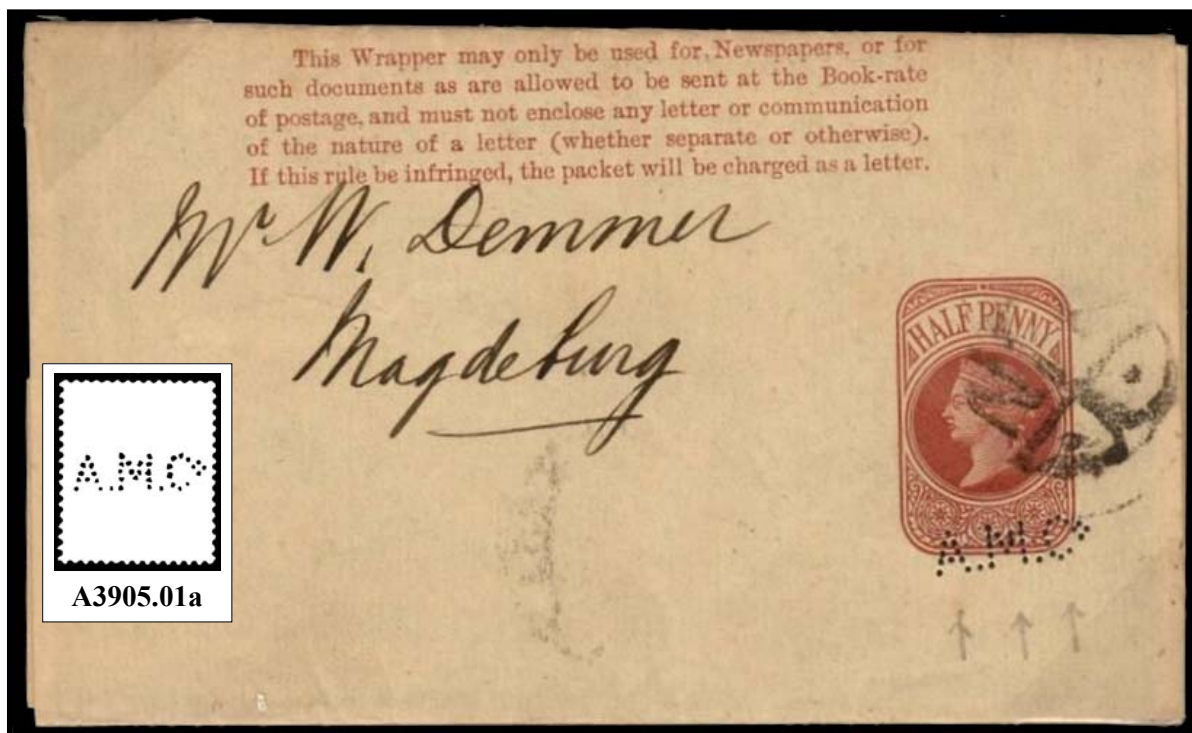 This Wrapper may only be used for, Newspapers, or for
such documents as are allowed to be sent at the Book-rate
of postage, and must not enclose any letter or communication
of the nature of a letter (whether separate or otherwise).
If this rule be infringed, the packet will be charged as a letter.
Mr W. Demmer
Magdeburg
HALFPENNY
A.M.C
A.M.C
A3905.01a